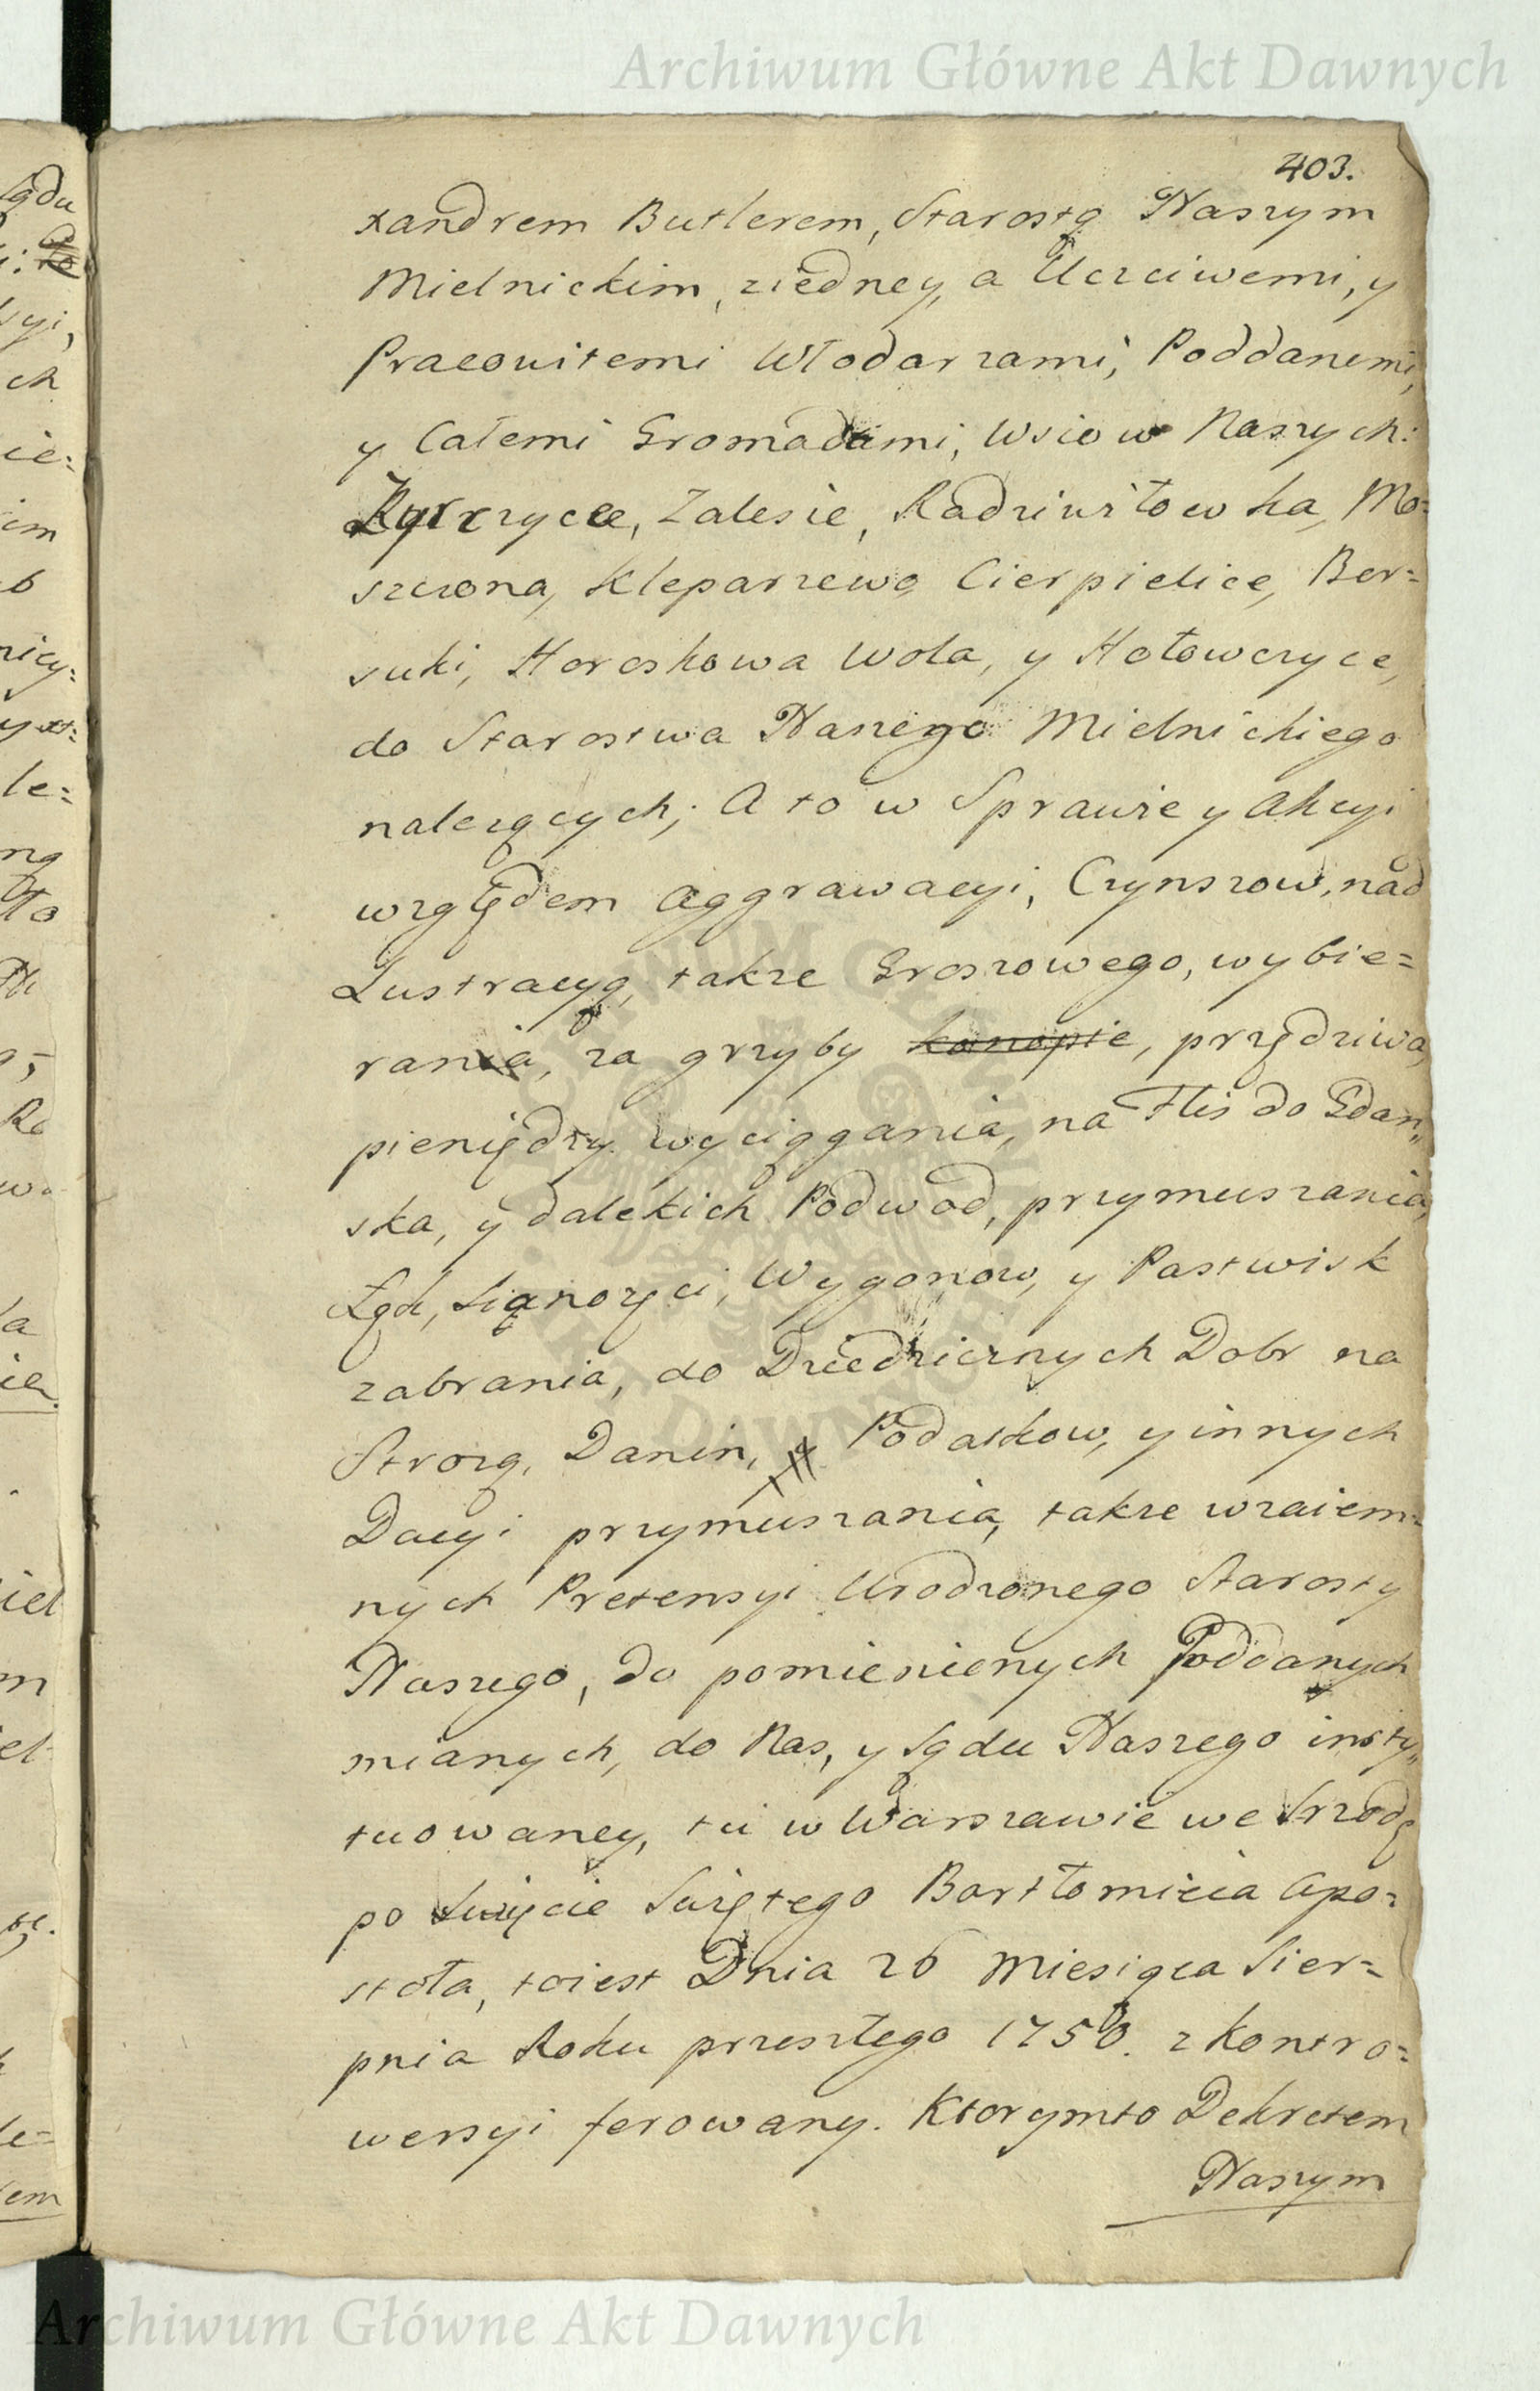 Archiwum Główne Akt Dawnych
403.
xandrem Butlerem, Starostą Naszym
Mielnickim, ziedney, a Uczciwemi, y
Pracowitemi Włodarzami, Poddanemi,
y Całemi Gromadami, Wsiow Naszych:
Zalesie, Radziwiłowka, Mo=
szczona, Kleparzewo, Cierpielice, Ber=
suki, Horoskowa Wola, y Hołowczyce,
do Starostwa Naszego Mielnickiego
należących; A to w Sprawie y Akcyi
względem Aggrawacyi, Czynszow, nad
Lustracyą, takze Groszowego, wybie=
rania, za grzyby konopie, przędziwa,
pieniędzy wyciągania, na Flis do Gdan„
ska, y dalekich Podwod, przymuszania,
Łąk, Sianozęci, Wygonow, y Pastwisk
zabrania, do Dziedzicznych Dobr na
Strozą, Danin, y Podatkow, y innych
Dacyi przymuszania, takze wzaiem=
nych Pretensyi Urodzonego Starosty
Naszego, do pomienionych Poddanych
mianych, do Nas, y Sądu Naszego insty„
tuowaney, tu w Warszawie we Srzodę
po Swięcie Swiętego Bartłomieia Apo=
stoła, toiest Dnia 26 Miesiąca Sier=
pnia Roku przeszłego 1750. z kontro=
wersyi ferowany. Ktorymto Dekretem
Naszym
Archiwum Główne Akt Dawnych